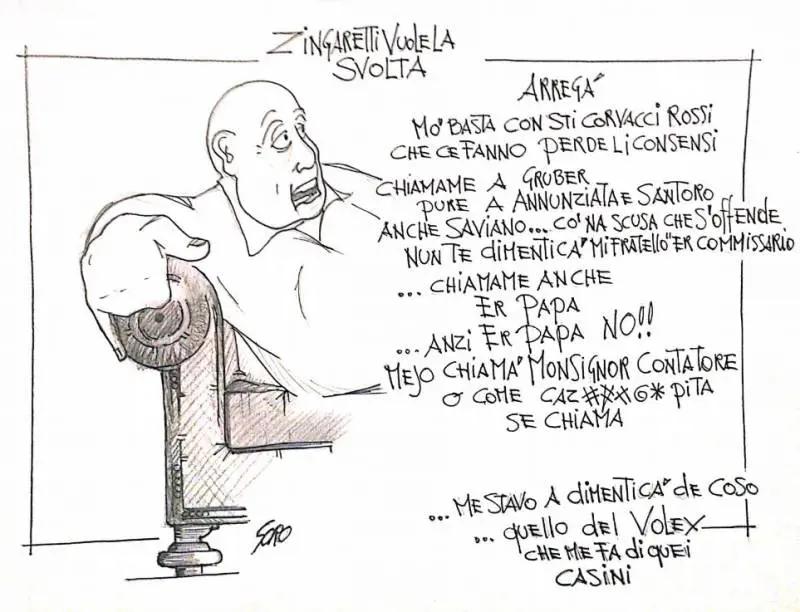 ZINGARETTI VUOLE LA
SVOLTA
ARREGA'
MO' BASTA CON STI CORVACCI ROSSI
CHE CE FANNO PERDE LI CONSENSI
CHIAMAME A GRUBER
PURE A ANNUNZIATA E SANTORO
ANCHE SAVIANO... CO' NA SCUSA CHE S'OFFENDE
NUN TE DIMENTICA' MI FRATELLO "ER COMMISSARIO
... CHIAMAME ANCHE
ER PAPA
... ANZI ER PAPA NO!!
MEJO CHIAMA' MONSIGNOR CONTATORE
O COME CAZ###@* PITA
SE CHIAMA
... ME STAVO A DIMENTICA' DE COSO
... QUELLO DEL VOLEX
CHE ME FA DI QUEI
CASINI
SORO